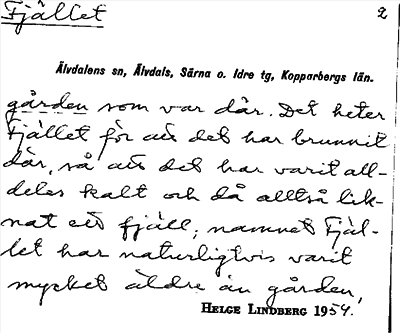 Fjället 2
Älvdalens sn, Älvdals, Särna o. Idre tg, Kopparbergs län.
gården som var där. Det heter
Fjället för att det har brunnit
där, så att det har varit all-
deles kalt och då alltså lik-
nat ett fjäll; namnet Fjäl-
let har naturligtvis varit
mycket äldre än gården,
HELGE LINDBERG 1954.